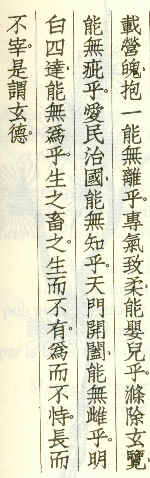 載營魄抱一能無離乎。專氣致柔能嬰兒乎。滌除玄覽、
能無疵乎。愛民治國、能無知乎。天門開闔、能無雌乎。明
白四達、能無爲乎。生之畜之。生而不有。爲而不恃。長而
不宰。是謂玄德。